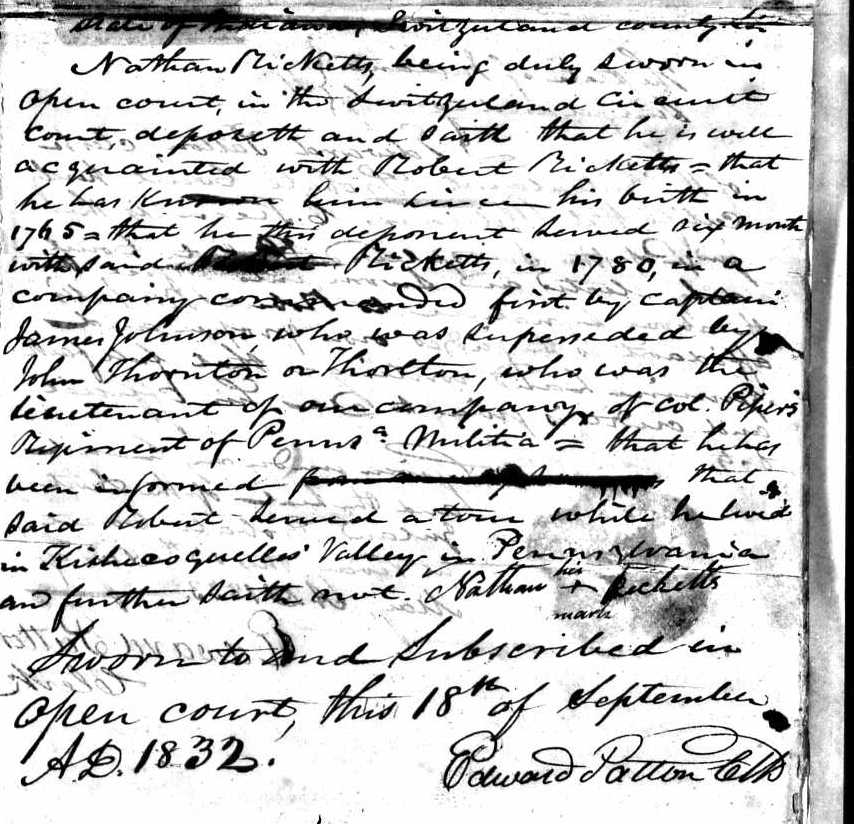 State of Indiana, Switzerland county Sct
Nathan Ricketts, being duly sworn in
open court, in the Switzerland Circuit
court, deposeth and saith that he is well
acquainted with Robert Ricketts = that
he has known him since his birth in
1765 = that he this deponent served six month
with said Ricketts, in 1780, in a
company commanded first by captain
James Johnson, who was superseded by
John Thornton or Thorlton, who was the
lieutenant of our company, of Col. Piper's
Regiment of Pennsa. Militia = that he has
been informed that
said Robert served a tour while he lived
in Kishecoquelles' Valley in Pennsylvania
an further saith not. Nathan his + mark Ricketts
Sworn to and Subscribed in
open court, this 18th of September
A.D. 1832.
Edward Patton Clk